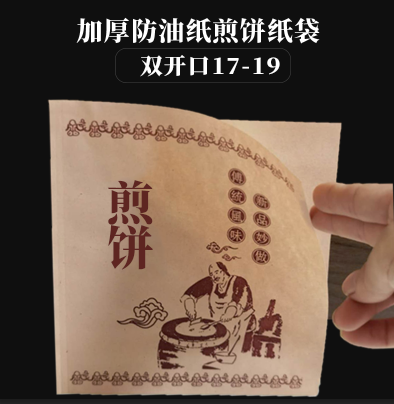 加厚防油纸煎饼纸袋
双开口17-19
煎饼
傳統風味
新品妙做